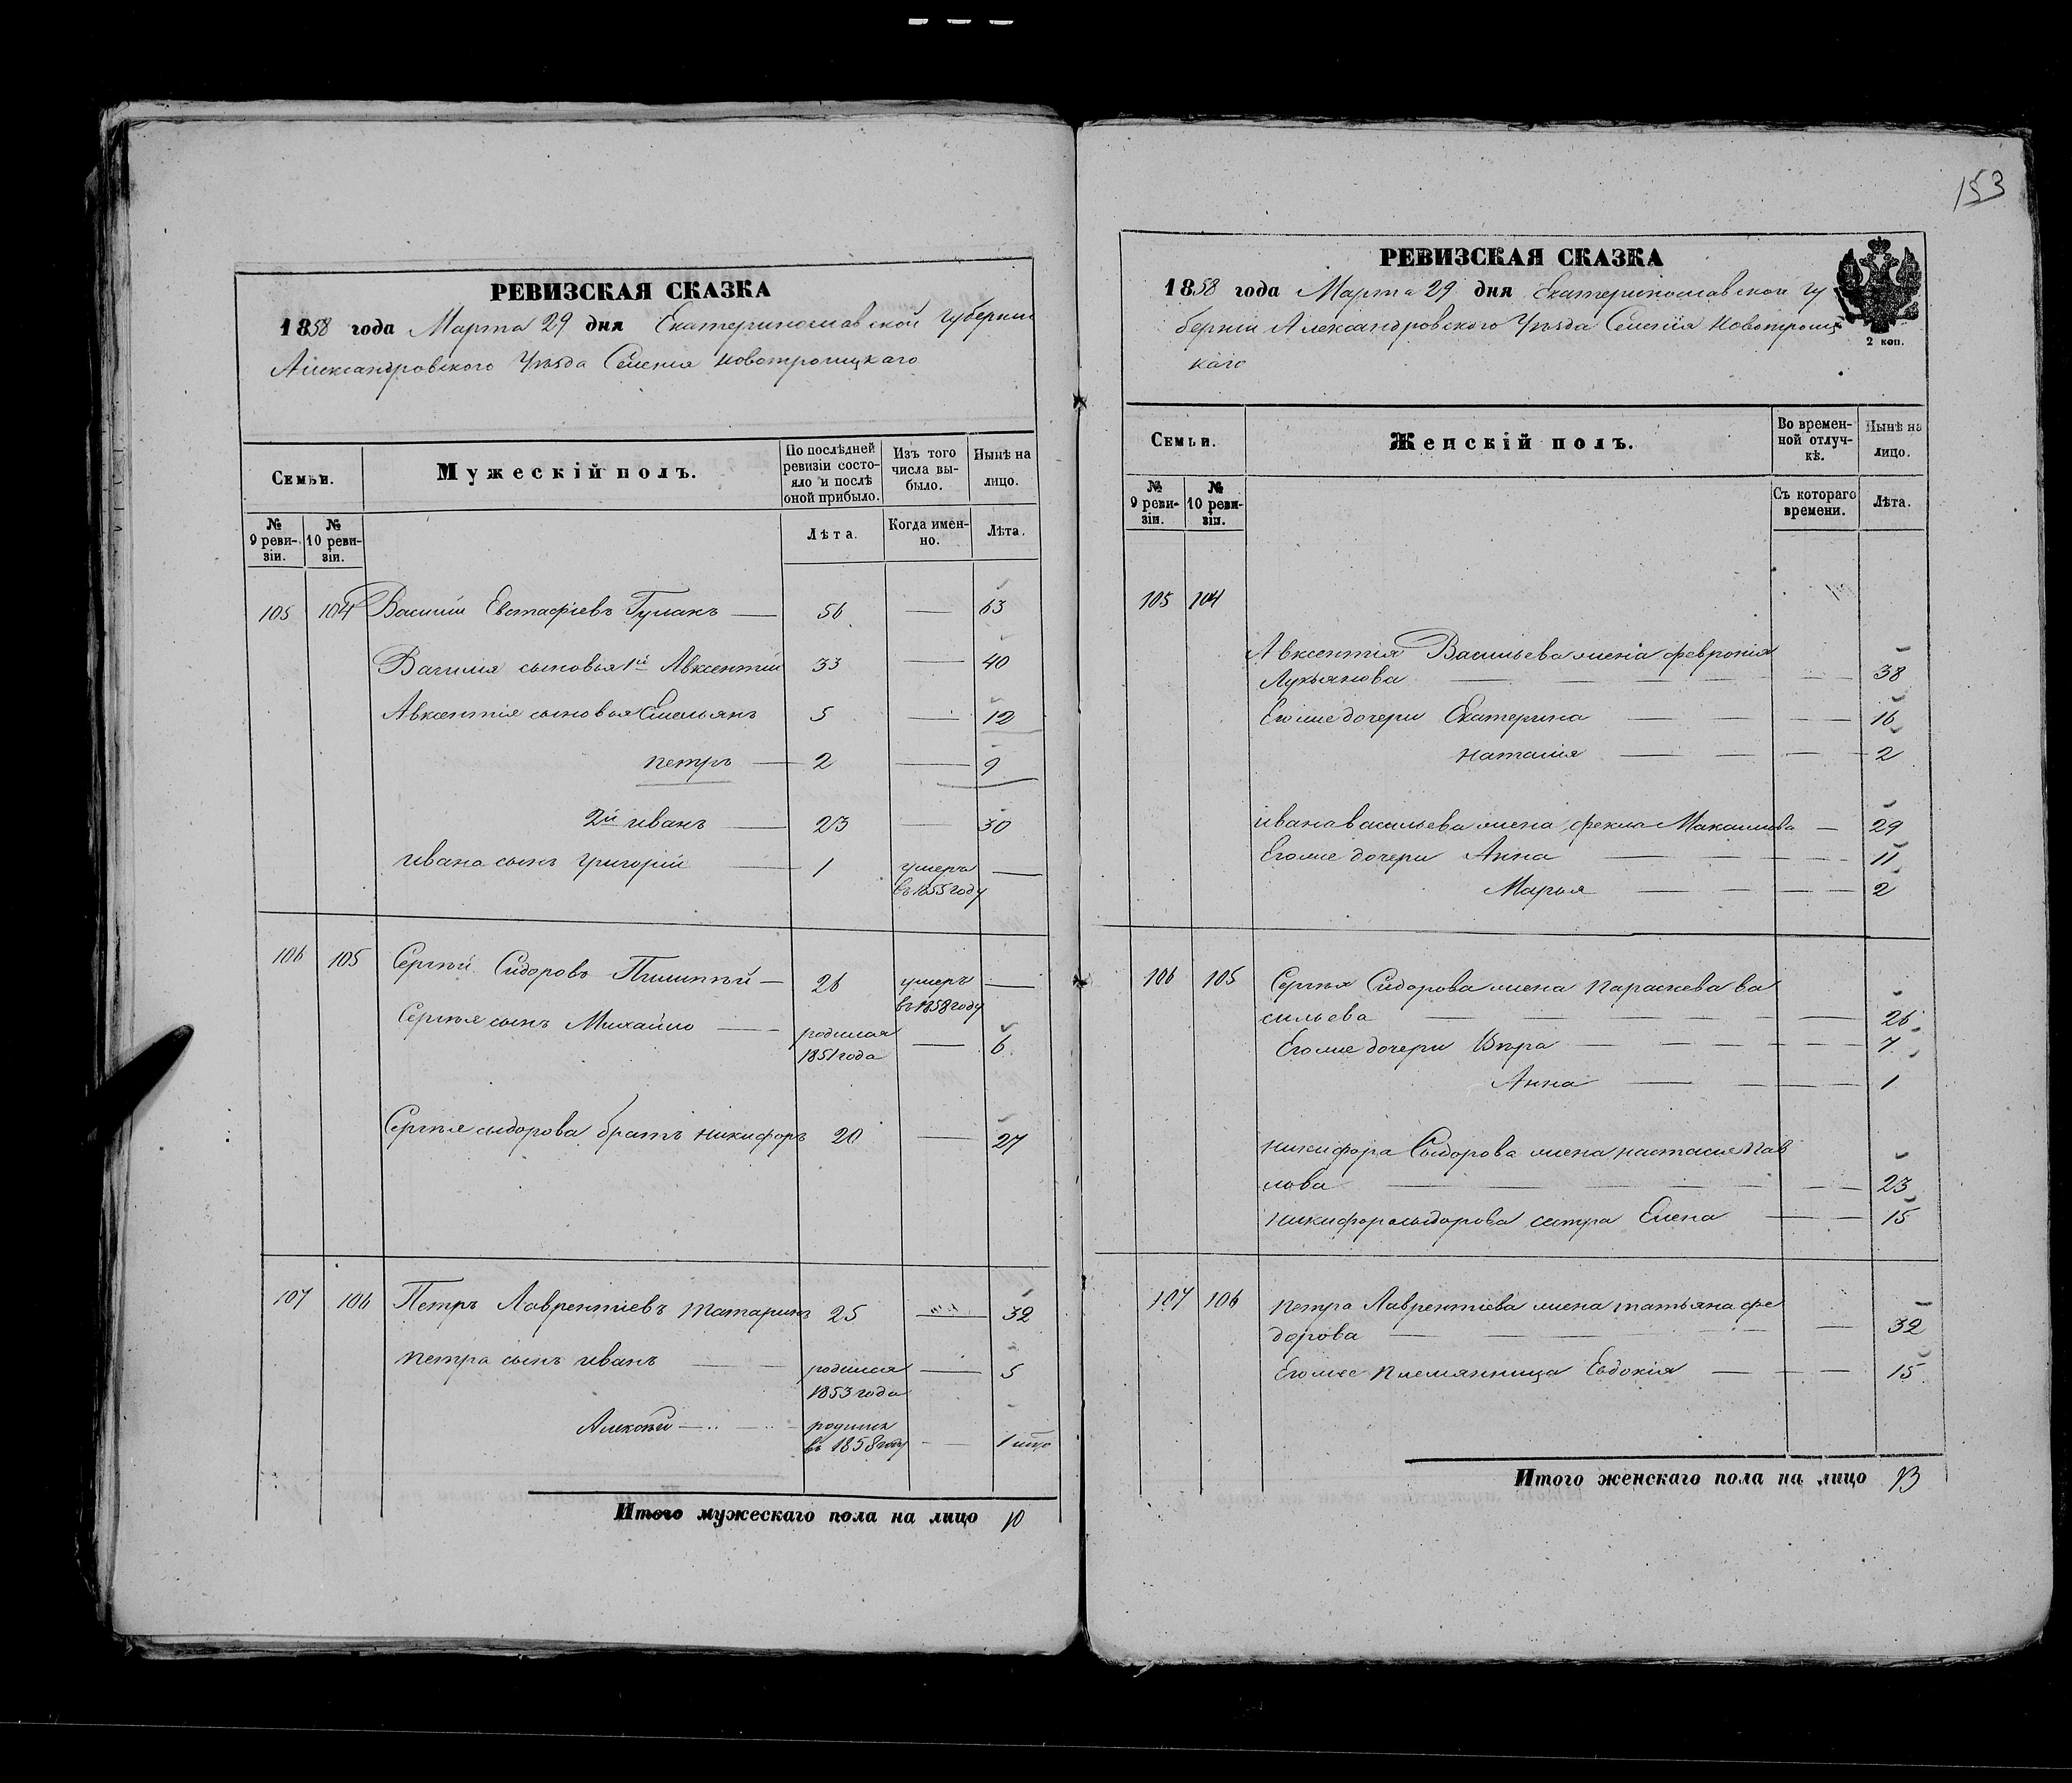 РЕВИЗСКАЯ СКАЗКА
1858 года Марта 29 дня Екатеринославской губерніи
Александровского Уѣзда Селенія новотроицкаго
Семьи.
Мужескій полъ.
По послѣдней ревизіи состояло и послѣ оной прибыло.
Изъ того числа выбыло.
Нынѣ на лицо.
№ 9 ревизіи.
№ 10 ревизіи.
Лѣта.
Когда именно.
Лѣта.
105 104 Василій Евстафіевъ Гулакъ — 56 — 63
Василия сыновья 1й Авксентій 33 — 40
Авксентія сыновья Емельянъ 5 — 12
петръ — 2 — 9
2й иванъ — 23 — 30
ивана сынъ григорій — 1 умеръ въ 1855 году —
106 105 Сергѣй Сидоровъ — 26 умеръ въ 1858 году —
Сергѣя сынъ Михайло — родился 1851 года — 6
Сергѣя сидорова братъ никифоръ 20 — 27
107 106 Петръ Лаврентіевъ татаринъ 25 — 32
петра сынъ иванъ — родился 1853 года — 5
Алексѣй — родился въ 1858 году — 1
Итого мужескаго пола на лицо 10
153
РЕВИЗСКАЯ СКАЗКА
1858 года Марта 29 дня Екатеринославской гу
берніи Александровского Уѣзда Селенія новотроиц
каго
2 коп.
Семьи.
Женскій полъ.
Во временной отлучкѣ.
Нынѣ на лицо.
№ 9 ревизіи.
№ 10 ревизіи.
Съ котораго времени.
Лѣта.
105 104
Авксентія Васильева жена феврониія
Лукьянова — 38
Егоже дочери Екатерина — 16
наталия — 2
ивана васильева жена фекла Максимова — 29
Егоже дочери Анна — 11
Марья — 2
106 105 Сергѣя Сидорова жена параскева ва
сильева — 26
Егоже дочери Вѣра — 7
Анна — 1
никифора Сидорова жена настасия Пав
лова — 23
никифора сидорова сестра Елена — 15
107 106 петра Лаврентіева жена татьяна фе
дорова — 32
Егоже племянница Евдокія — 15
Итого женскаго пола на лицо 13